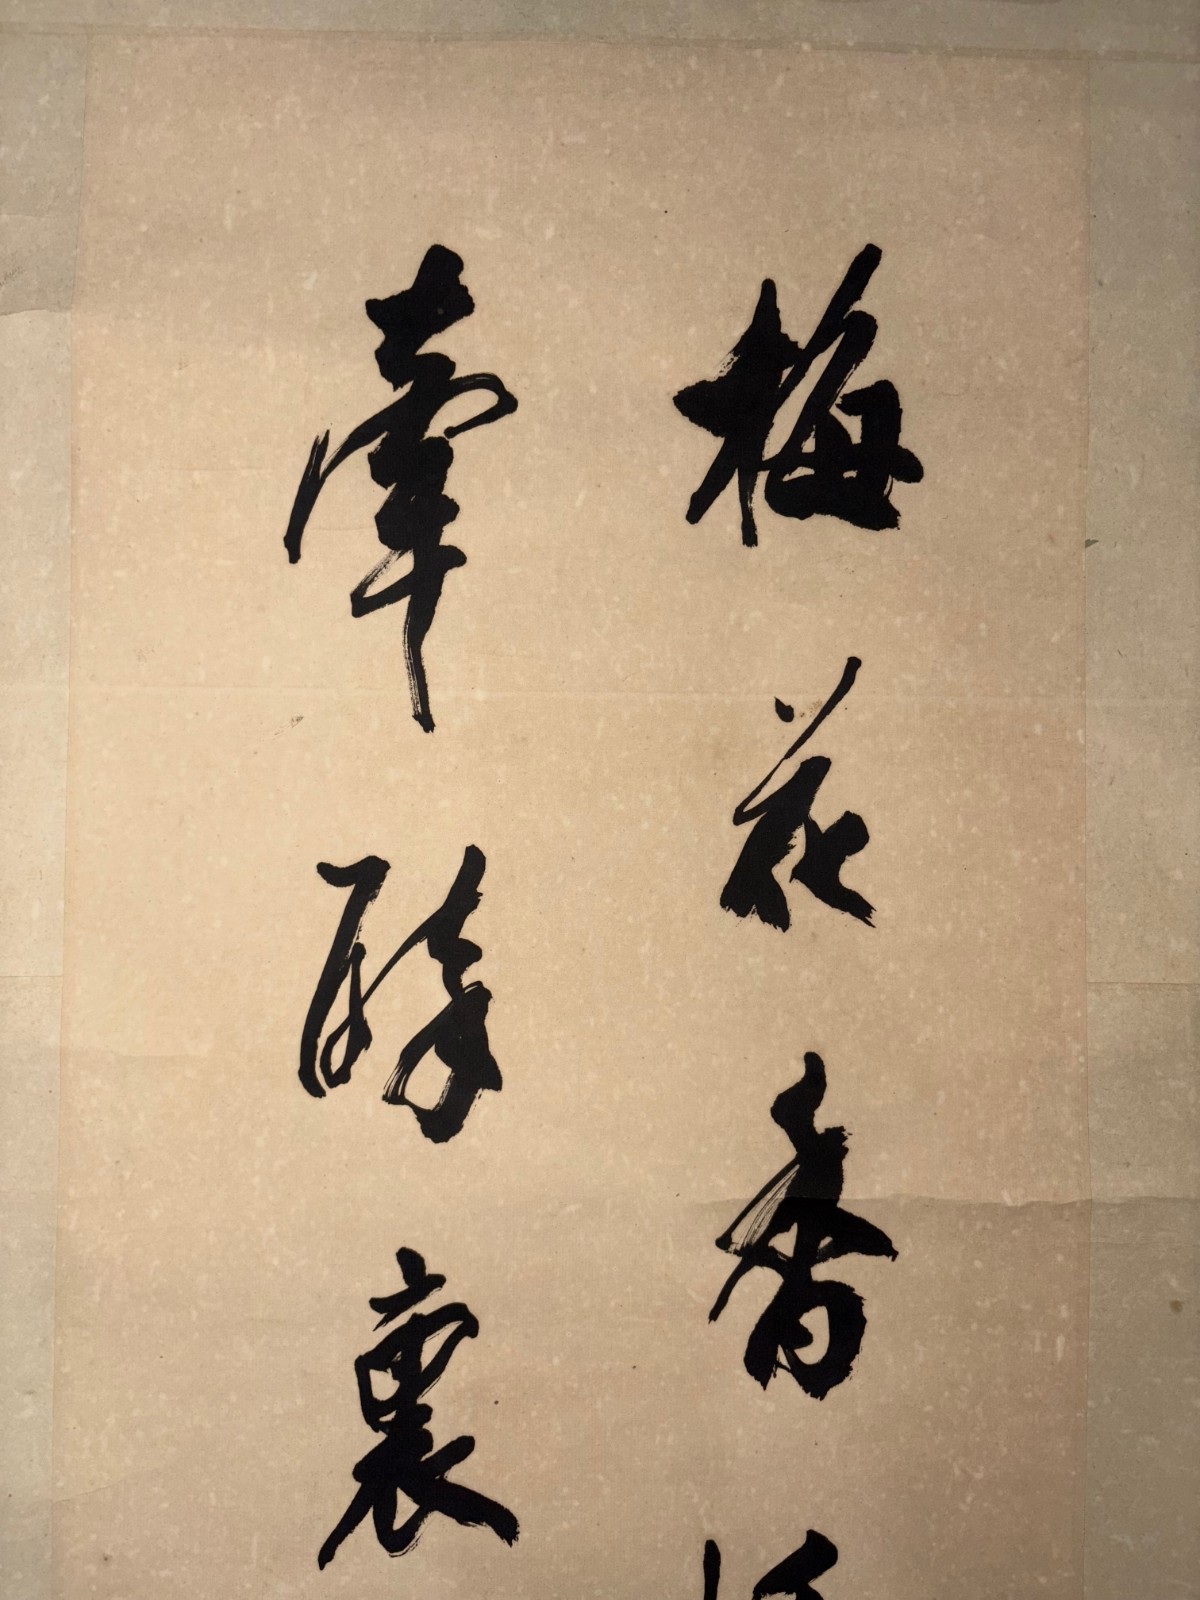 梅花香
牽醉裏